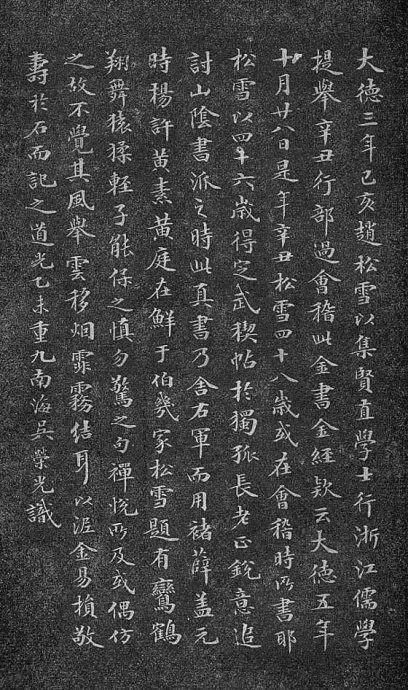 大德三年己亥趙松雪以集賢直學士行浙江儒學
提舉辛丑行部過會稽此金書金經欵云大德五年
十月廿八日是年辛丑松雪四十八歲或在會稽時所書耶
松雪以四十六歲得定武稧帖於獨孤長老正銳意追
討山陰書派之時此真書乃舍右軍而用褚薛盖元
時楊許黃素黃庭在鮮于伯幾家松雪題有鸞鶴
翔舞猿猱輕子能保之慎勿驚之句禪悅所及或偶仿
之故不覺其風舉雲移烟霏霧結耳以泥金易損敬
壽於石而記之道光乙未重九南海吳榮光識